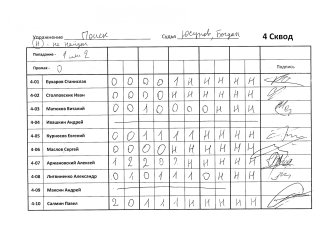 Упражнение Поиск Судья Юсупов, Богдан 4 Сквод
(Н) - не найден
Попадание - 1 или 2
Промах - 0 Подпись
4-01 Бухаров Станислав 0 0 0 0 1 Н Н Н Н Н
4-02 Столповских Иван 0 0 0 0 Н Н Н Н Н Н
4-03 Матюхов Виталий 0 0 1 0 0 0 0 Н Н Н
4-04 Ивашкин Андрей
4-05 Курносов Евгений 0 0 1 1 1 1 Н Н Н Н
4-06 Маслов Сергей 0 0 0 0 1 0 Н Н Н Н
4-07 Армановский Алексей 1 2 2 0 2 Н Н Н Н Н
4-08 Литвиненко Александр 0 1 0 1 1 0 Н Н Н
4-09 Максин Андрей
4-10 Салмин Павел 2 0 1 1 Н Н Н Н Н Н